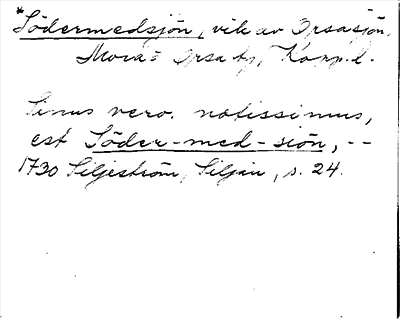 *Södermedsjön, vik av Orsasjön.
Mora o Orsa
Sinus vero. notissimus,
est Söder-med-siön, --
1730 Siljeström, Siljan, s. 24.